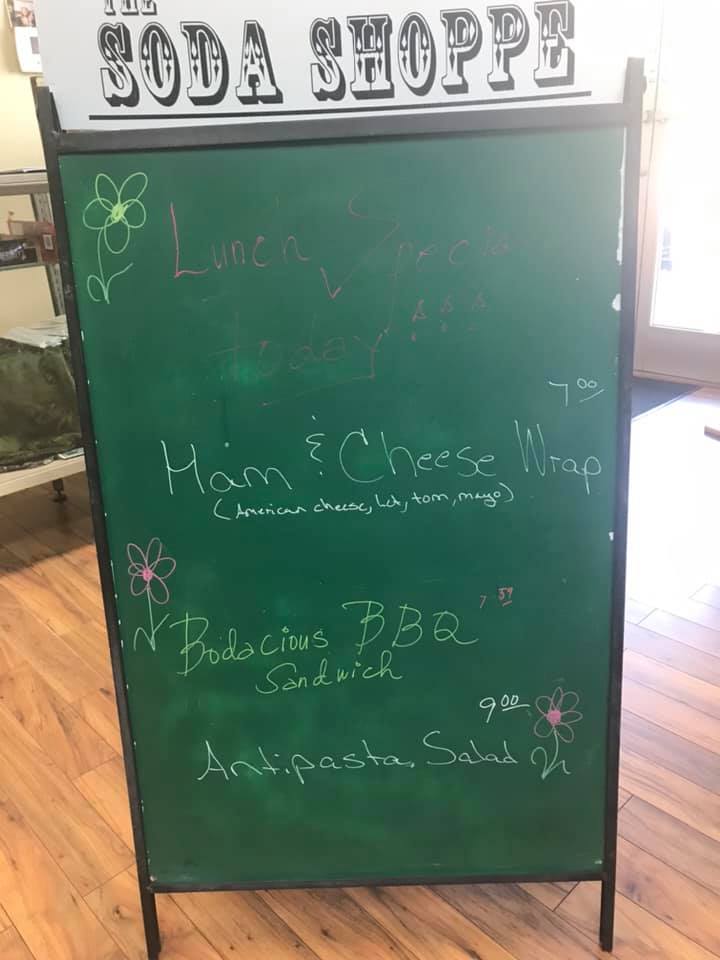 THE
SODA SHOPPE
Lunch Special
today!!!
7.00
Ham & Cheese Wrap
(American cheese, let, tom, mayo)
7.59
Bodacious BBQ
Sandwich
9.00
Antipasta Salad